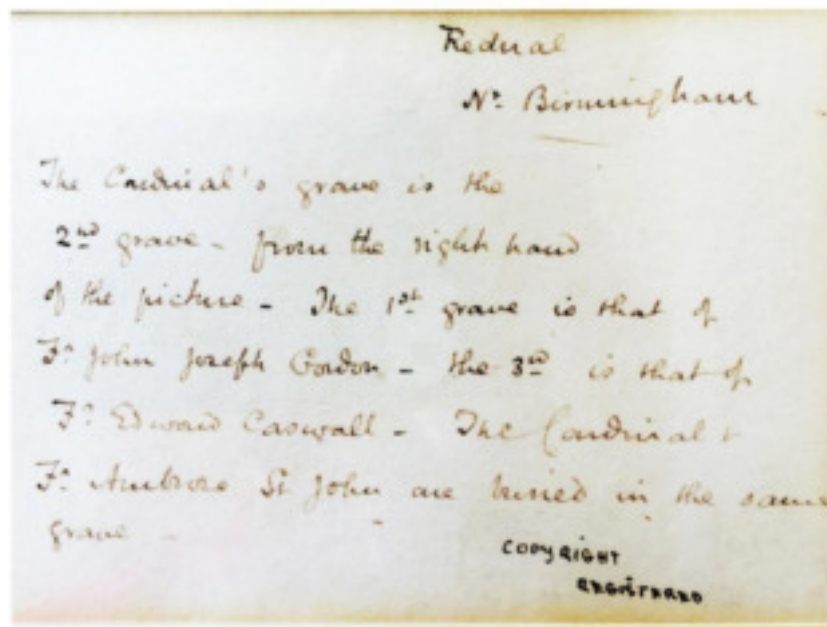 Rednal
Nr. Birmingham
The Cardinal's grave is the
2nd grave - from the right hand
of the picture - The 1st grave is that of
Fr. John Joseph Gordon - the 3rd is that of
Fr. Edward Caswall - The Cardinal &
Fr. Ambrose St John are buried in the same
grave -
COPYRIGHT
REGISTERED